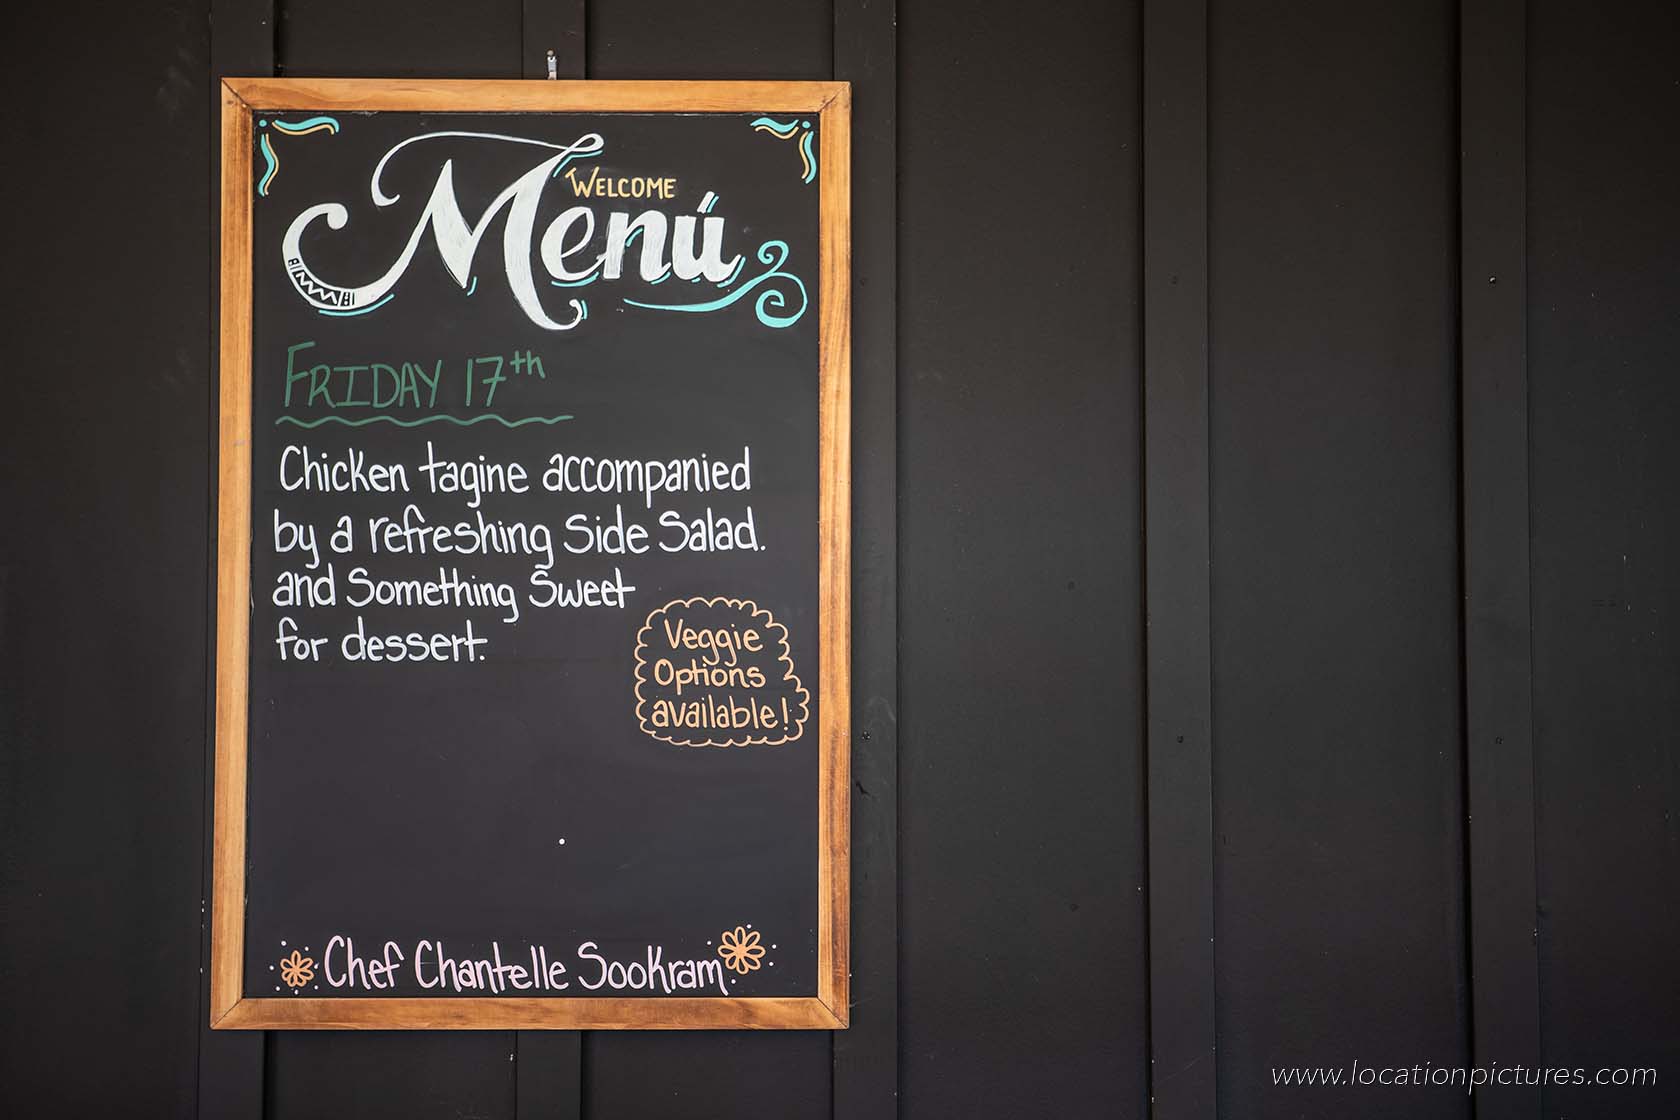 WELCOME
Menú
FRIDAY 17th
Chicken tagine accompanied
by a refreshing Side Salad.
and Something Sweet
for dessert.
Veggie
Options
available!
Chef Chantelle Sookram
www.locationpictures.com